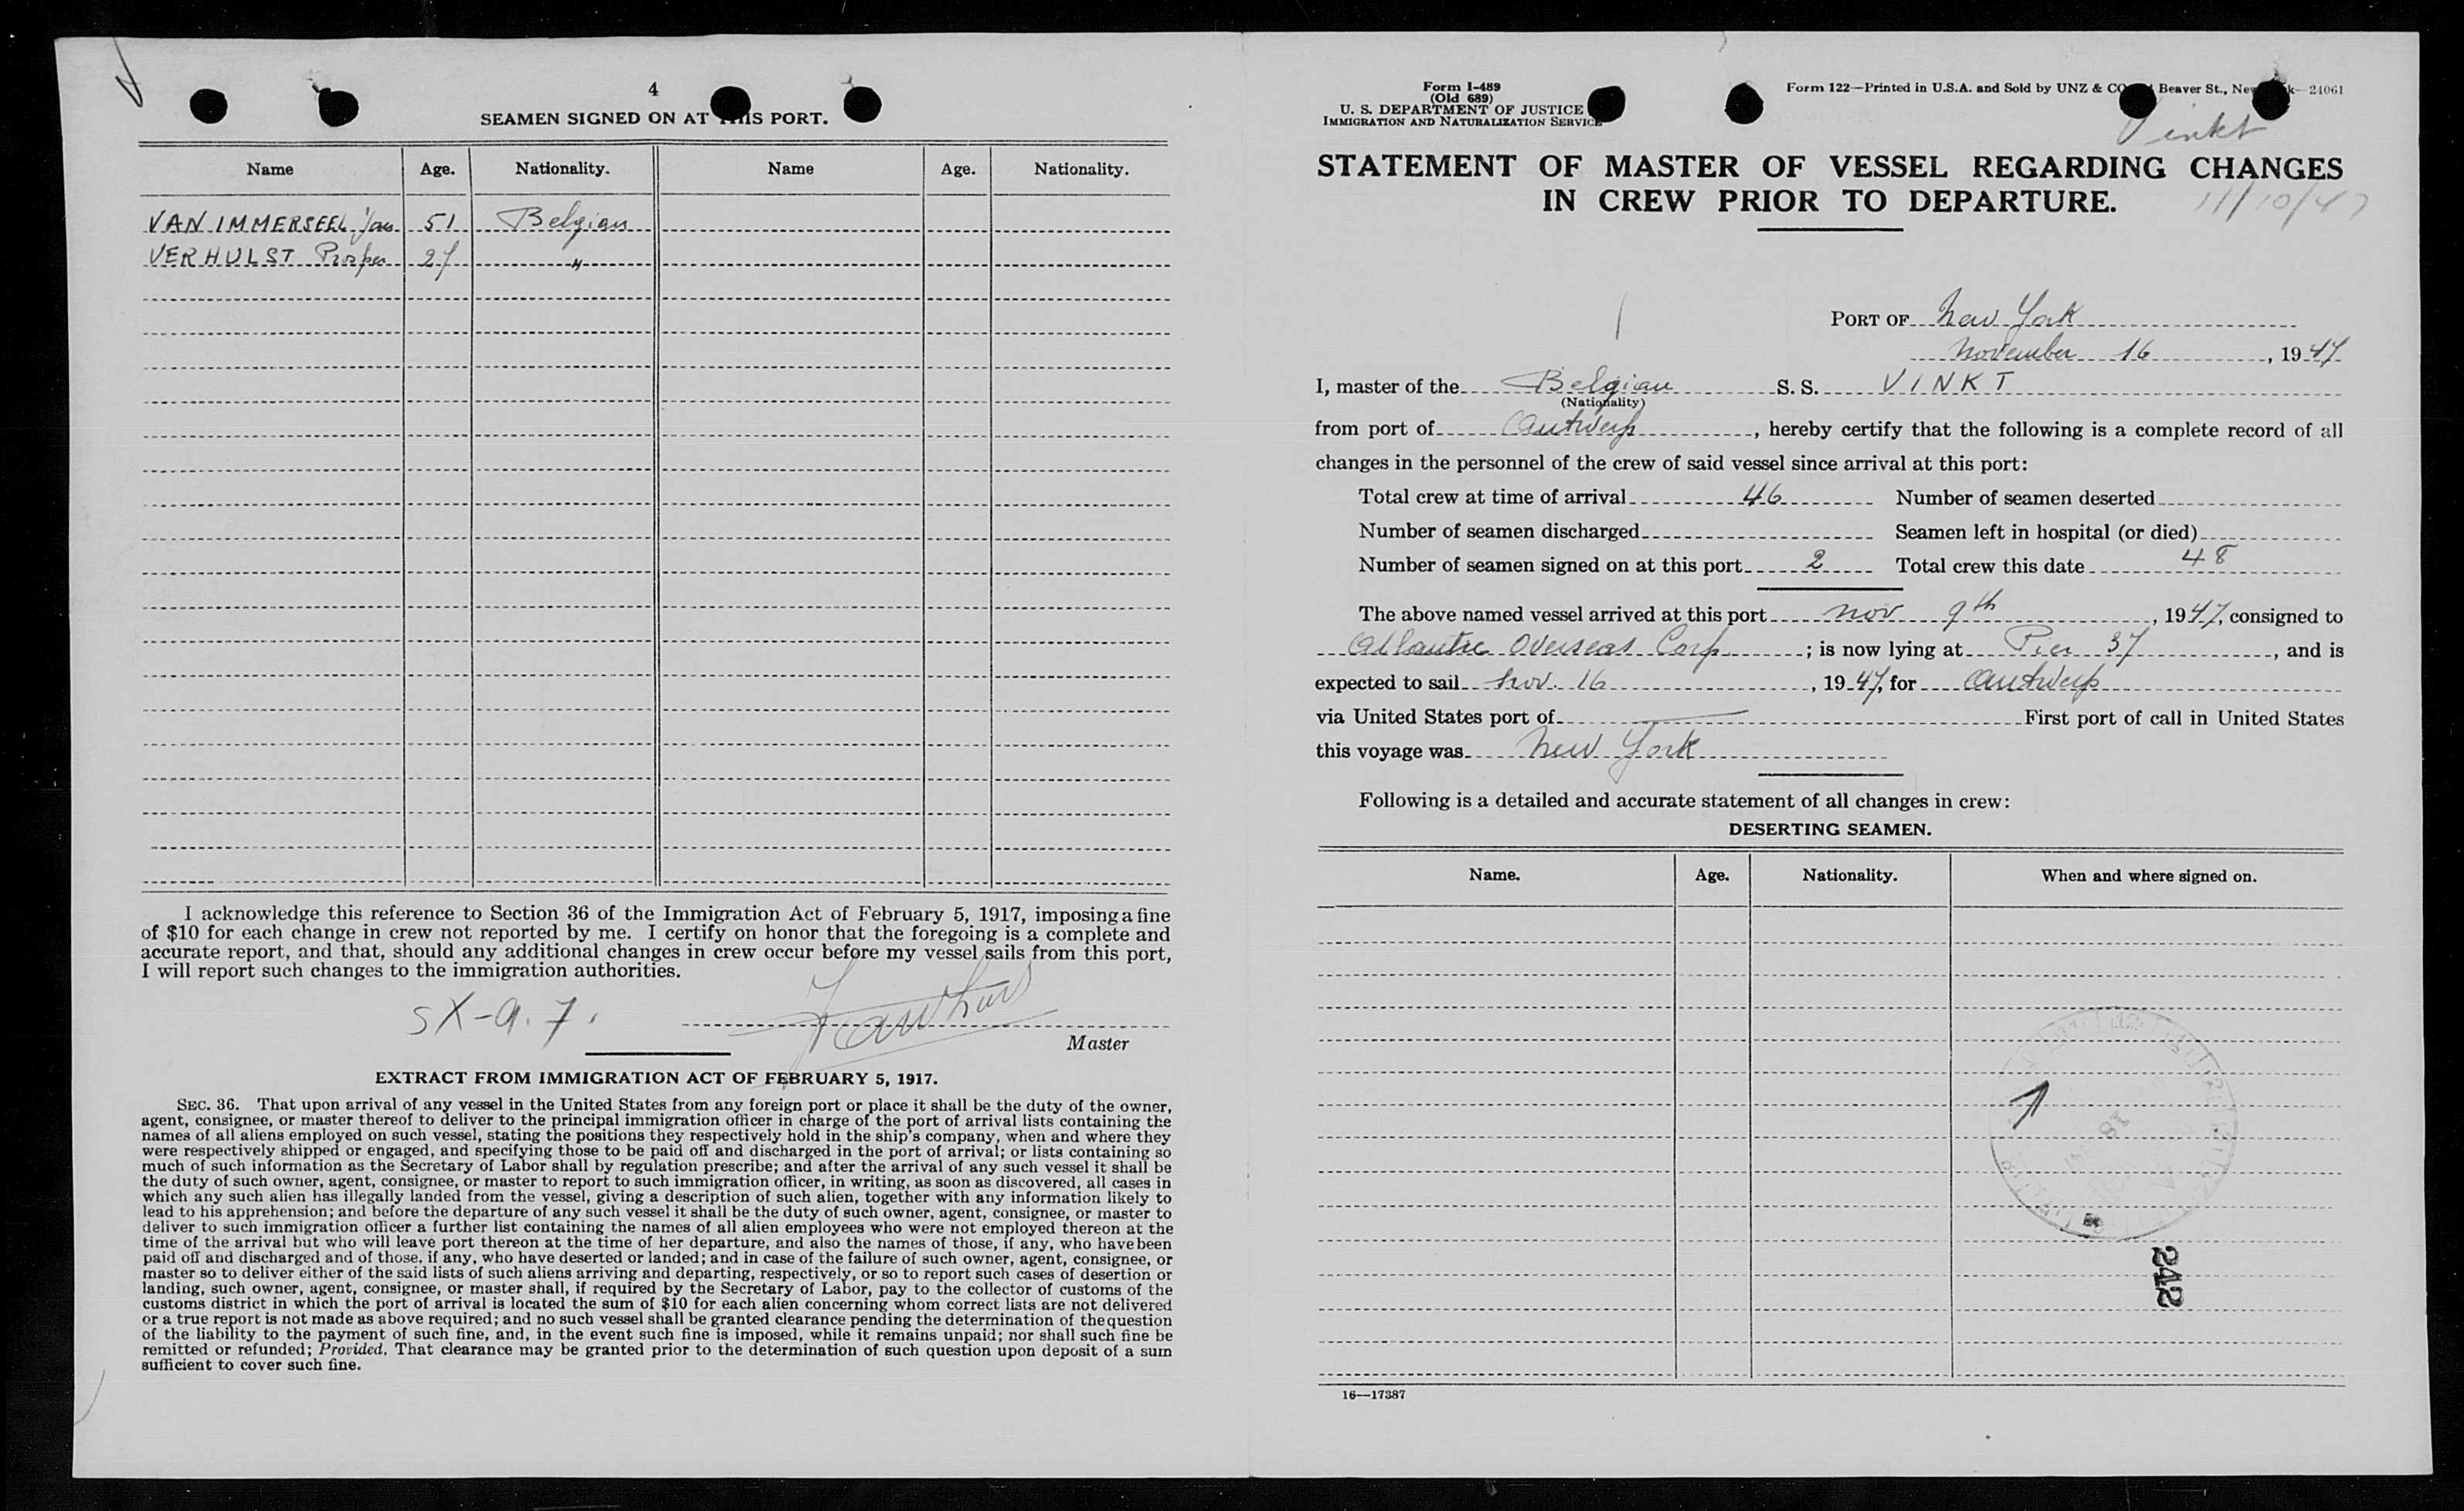 4
SEAMEN SIGNED ON AT THIS PORT.
Name Age. Nationality. Name Age. Nationality.
VAN IMMERSEEL Jan 51 Belgian
VERHULST Prosper 27 "
I acknowledge this reference to Section 36 of the Immigration Act of February 5, 1917, imposing a fine
of $10 for each change in crew not reported by me. I certify on honor that the foregoing is a complete and
accurate report, and that, should any additional changes in crew occur before my vessel sails from this port,
I will report such changes to the immigration authorities.
SX-a.7.
Master
EXTRACT FROM IMMIGRATION ACT OF FEBRUARY 5, 1917.
SEC. 36. That upon arrival of any vessel in the United States from any foreign port or place it shall be the duty of the owner,
agent, consignee, or master thereof to deliver to the principal immigration officer in charge of the port of arrival lists containing the
names of all aliens employed on such vessel, stating the positions they respectively hold in the ship's company, when and where they
were respectively shipped or engaged, and specifying those to be paid off and discharged in the port of arrival; or lists containing so
much of such information as the Secretary of Labor shall by regulation prescribe; and after the arrival of any such vessel it shall be
the duty of such owner, agent, consignee, or master to report to such immigration officer, in writing, as soon as discovered, all cases in
which any such alien has illegally landed from the vessel, giving a description of such alien, together with any information likely to
lead to his apprehension; and before the departure of any such vessel it shall be the duty of such owner, agent, consignee, or master to
deliver to such immigration officer a further list containing the names of all alien employees who were not employed thereon at the
time of the arrival but who will leave port thereon at the time of her departure, and also the names of those, if any, who have been
paid off and discharged and of those, if any, who have deserted or landed; and in case of the failure of such owner, agent, consignee, or
master so to deliver either of the said lists of such aliens arriving and departing, respectively, or so to report such cases of desertion or
landing, such owner, agent, consignee, or master shall, if required by the Secretary of Labor, pay to the collector of customs of the
customs district in which the port of arrival is located the sum of $10 for each alien concerning whom correct lists are not delivered
or a true report is not made as above required; and no such vessel shall be granted clearance pending the determination of the question
of the liability to the payment of such fine, and, in the event such fine is imposed, while it remains unpaid; nor shall such fine be
remitted or refunded; Provided, That clearance may be granted prior to the determination of such question upon deposit of a sum
sufficient to cover such fine.
Form I-489
(Old 689)
U. S. DEPARTMENT OF JUSTICE
IMMIGRATION AND NATURALIZATION SERVICE
Form 122—Printed in U.S.A. and Sold by UNZ & CO Beaver St., New 24061
Vinkt
STATEMENT OF MASTER OF VESSEL REGARDING CHANGES
IN CREW PRIOR TO DEPARTURE.
11/10/47
PORT OF New York
November 16, 1947
I, master of the Belgian S. S. VINKT
(Nationality)
from port of Antwerp, hereby certify that the following is a complete record of all
changes in the personnel of the crew of said vessel since arrival at this port:
Total crew at time of arrival 46 Number of seamen deserted
Number of seamen discharged Seamen left in hospital (or died)
Number of seamen signed on at this port 2 Total crew this date 48
The above named vessel arrived at this port Nov 9th, 1947, consigned to
Atlantic Overseas Corp; is now lying at Pier 37, and is
expected to sail Nov. 16, 1947, for Antwerp
via United States port of — First port of call in United States
this voyage was New York
Following is a detailed and accurate statement of all changes in crew:
DESERTING SEAMEN.
Name. Age. Nationality. When and where signed on.
18
242
16—17387